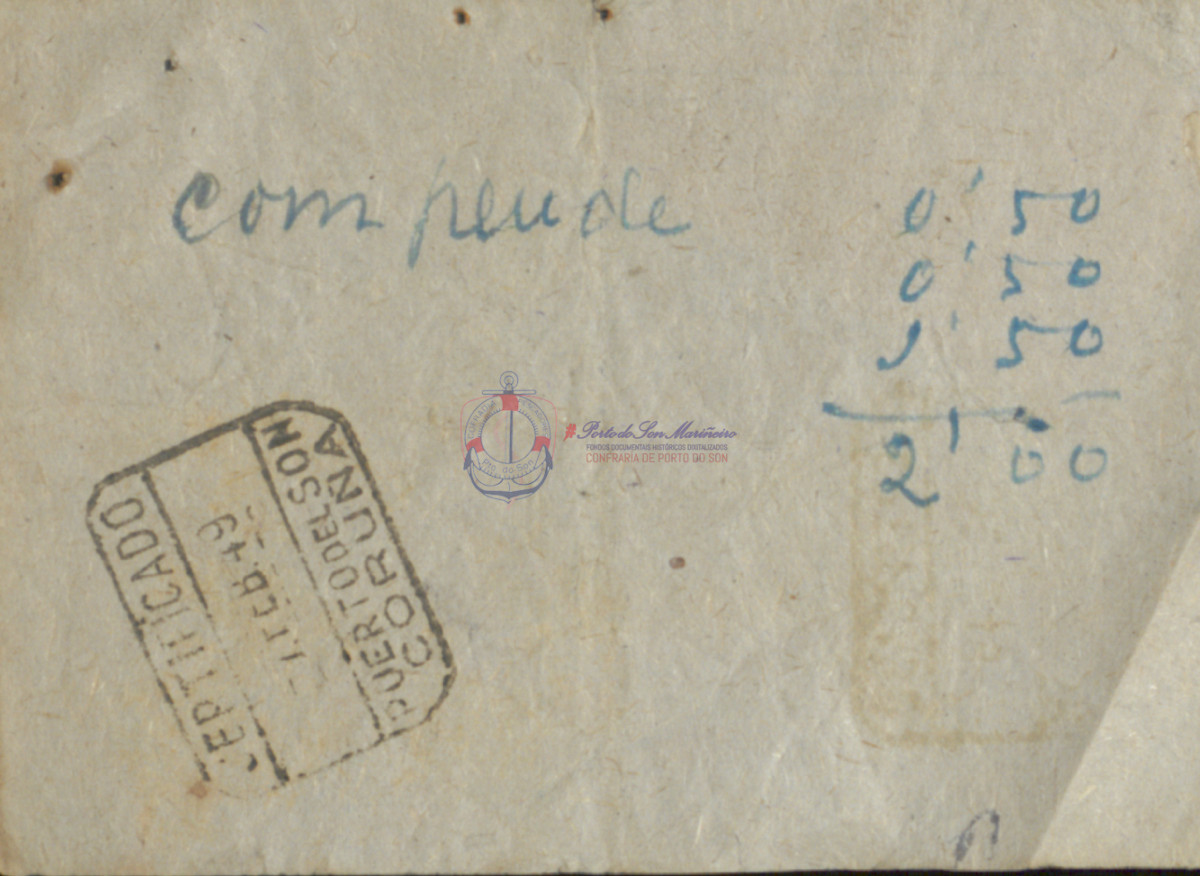 compende 0'50
0'50
1'50
2'00
CERTIFICADO
-1.FEB.49-
PUERTO DEL SON
CORUÑA
#Porto do Son Mariñeiro
FONDOS DOCUMENTAIS HISTÓRICOS DIXITALIZADOS
CONFRARIA DE PORTO DO SON